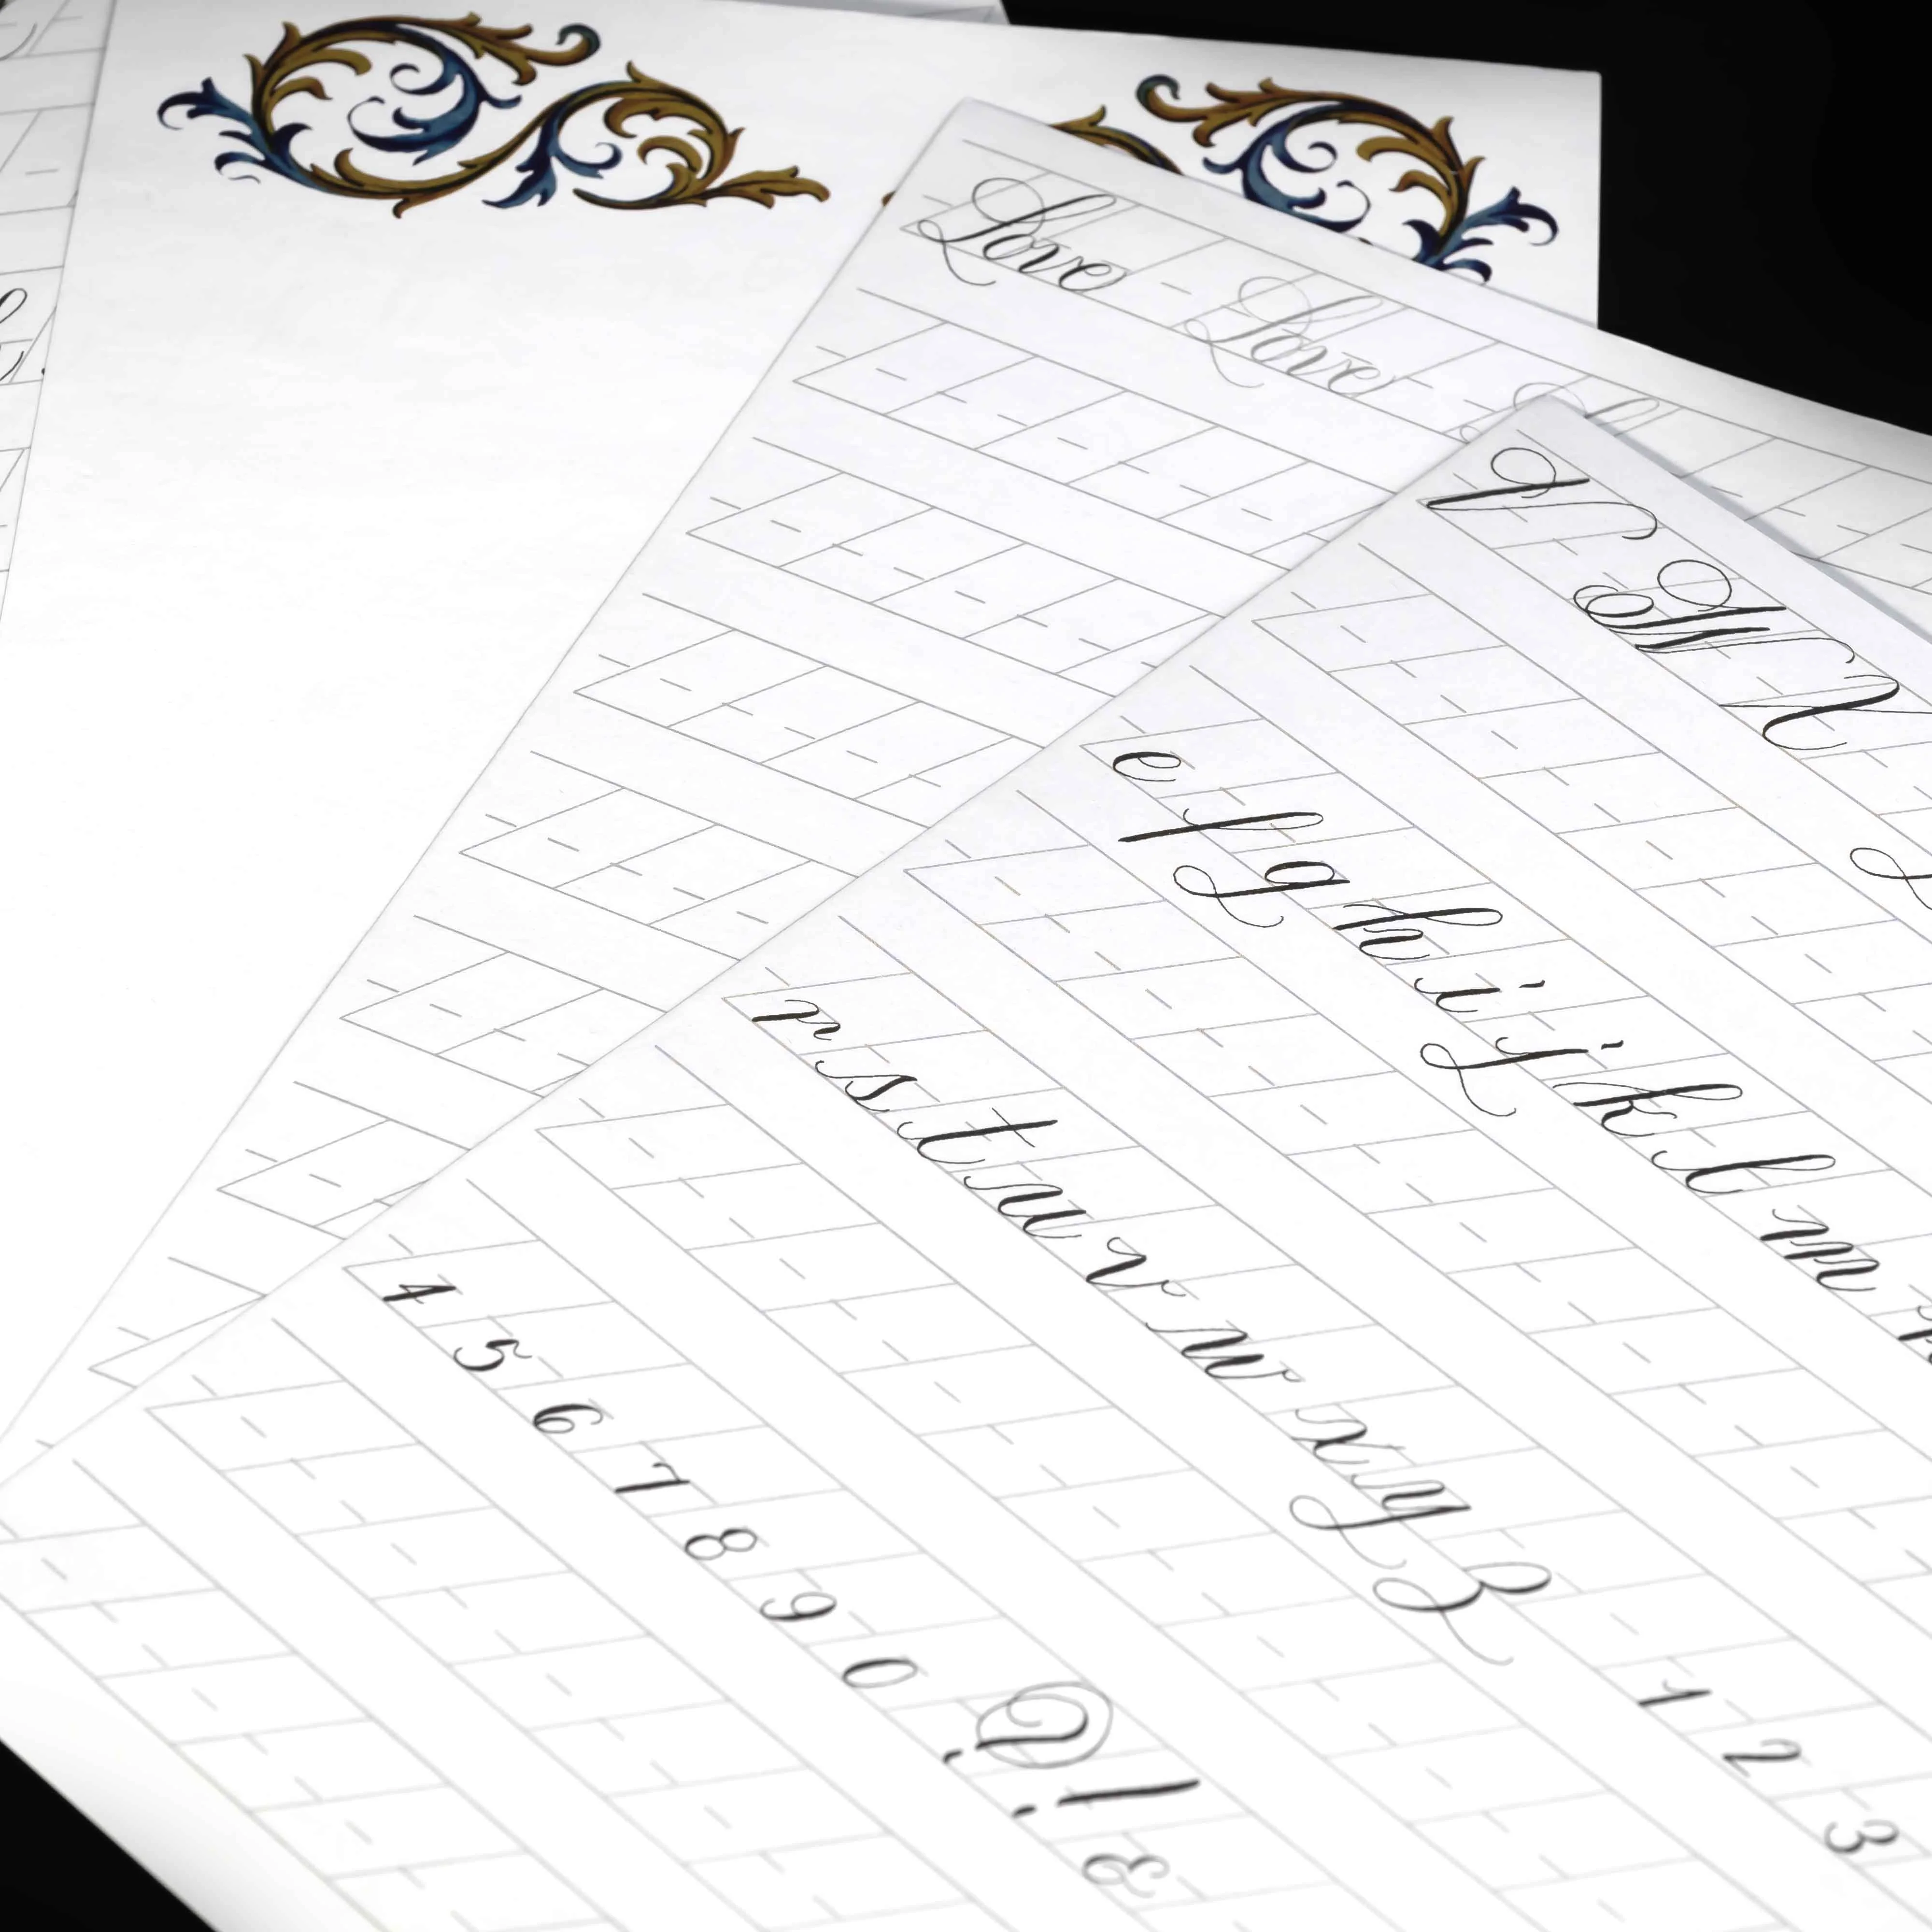 Love Love
V W N
e f g h i j k l m
r s t u v w x y z 1 2 3
4 5 6 7 8 9 0 ? ! &